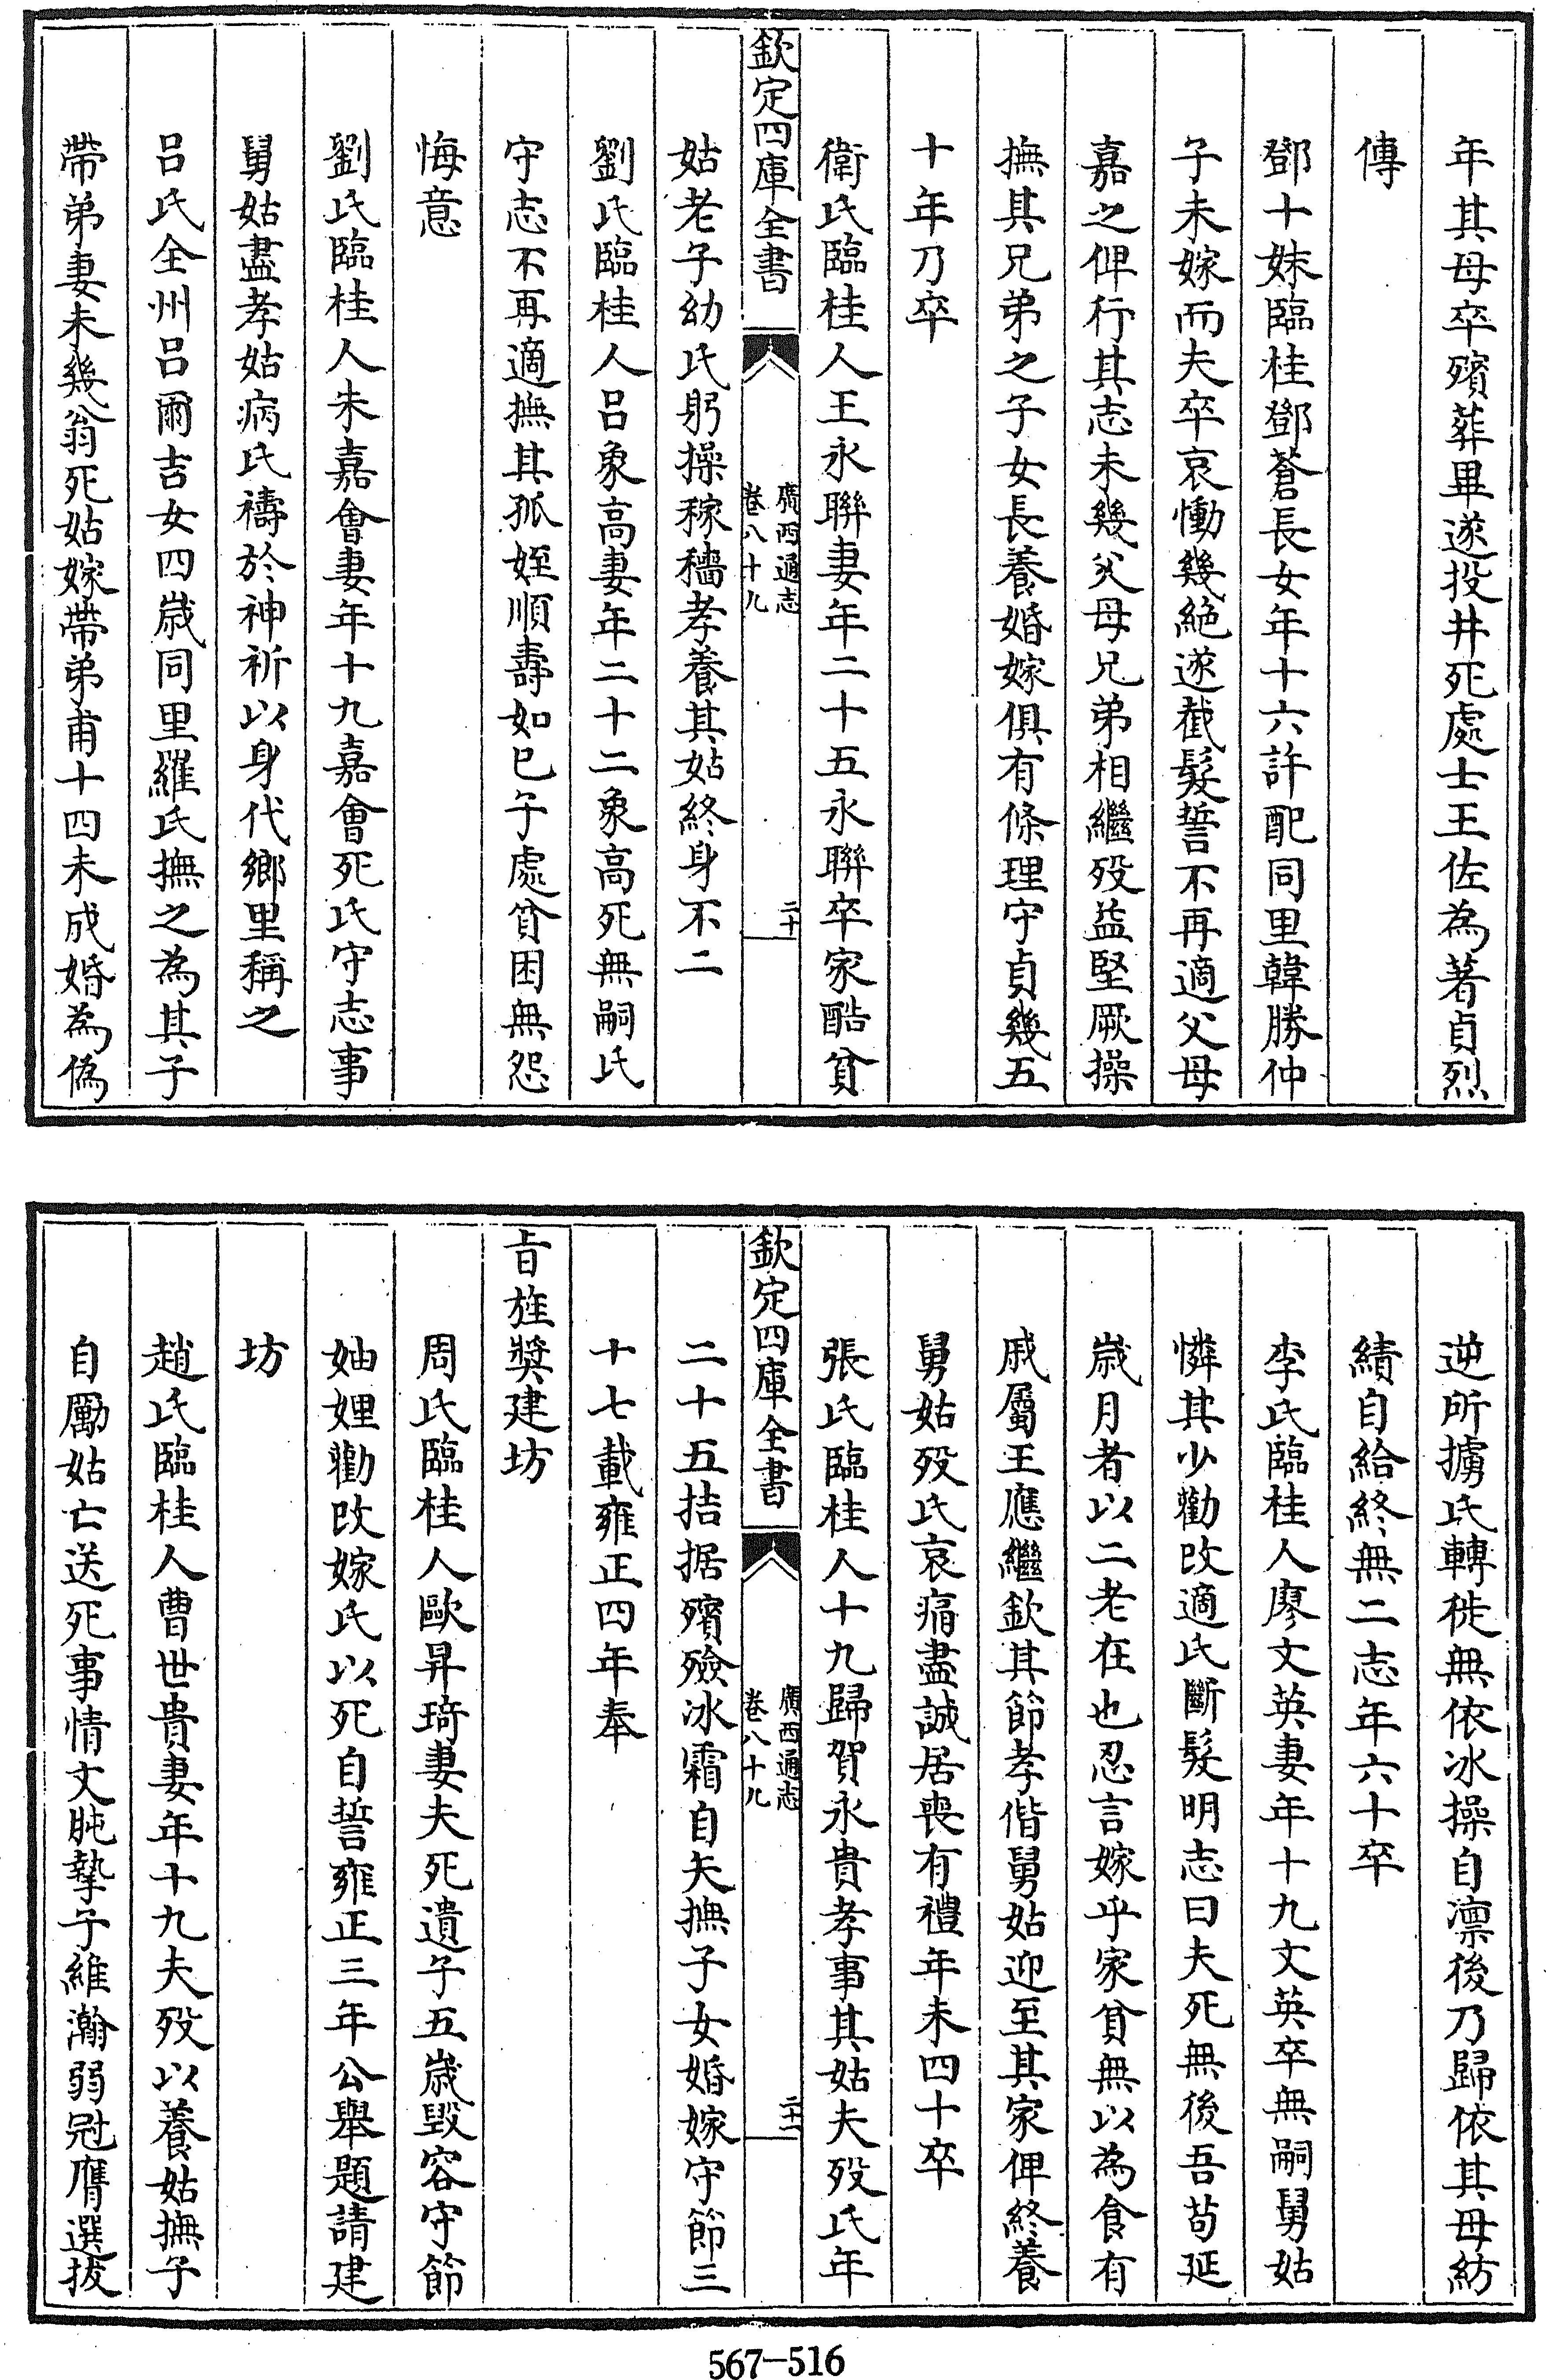 年其母卒殯葬畢遂投井死處士王佐為著貞烈
傳
鄧十妹臨桂鄧蒼長女年十六許配同里韓勝仲
子未嫁而夫卒哀慟幾絕遂截髮誓不再適父母
嘉之俾行其志未幾父母兄弟相繼歿益堅厥操
撫其兄弟之子女長養婚嫁俱有條理守貞幾五
十年乃卒
衛氏臨桂人王永聯妻年二十五永聯卒家酷貧
欽定四庫全書
廣西通志
卷八十九
二十
姑老子幼氏躬操稼穡孝養其姑終身不二
劉氏臨桂人呂象高妻年二十二象高死無嗣氏
守志不再適撫其孤姪順壽如已子處貧困無怨
悔意
劉氏臨桂人朱嘉會妻年十九嘉會死氏守志事
舅姑盡孝姑病氏禱於神祈以身代鄉里稱之
呂氏全州呂爾吉女四歲同里羅氏撫之為其子
帶弟妻未幾翁死姑嫁帶弟甫十四未成婚為偽
逆所擄氏轉徙無依冰操自凜後乃歸依其母紡
績自給終無二志年六十卒
李氏臨桂人廖文英妻年十九文英卒無嗣舅姑
憐其少勸改適氏斷髮明志曰夫死無後吾茍延
歲月者以二老在也忍言嫁乎家貧無以為食有
戚屬王應繼欽其節孝偕舅姑迎至其家俾終養
舅姑歿氏哀痛盡誠居喪有禮年未四十卒
張氏臨桂人十九歸賀永貴孝事其姑夫歿氏年
欽定四庫全書
廣西通志
卷八十九
二十一
二十五拮据殯殮冰霜自矢撫子女婚嫁守節三
十七載雍正四年奉
旨旌獎建坊
周氏臨桂人歐昇琦妻夫死遺子五歲毀容守節
妯娌勸改嫁氏以死自誓雍正三年公舉題請建
坊
趙氏臨桂人曹世貴妻年十九夫歿以養姑撫子
自勵姑亡送死事情文肫摯子維瀚弱冠膺選拔
567-516